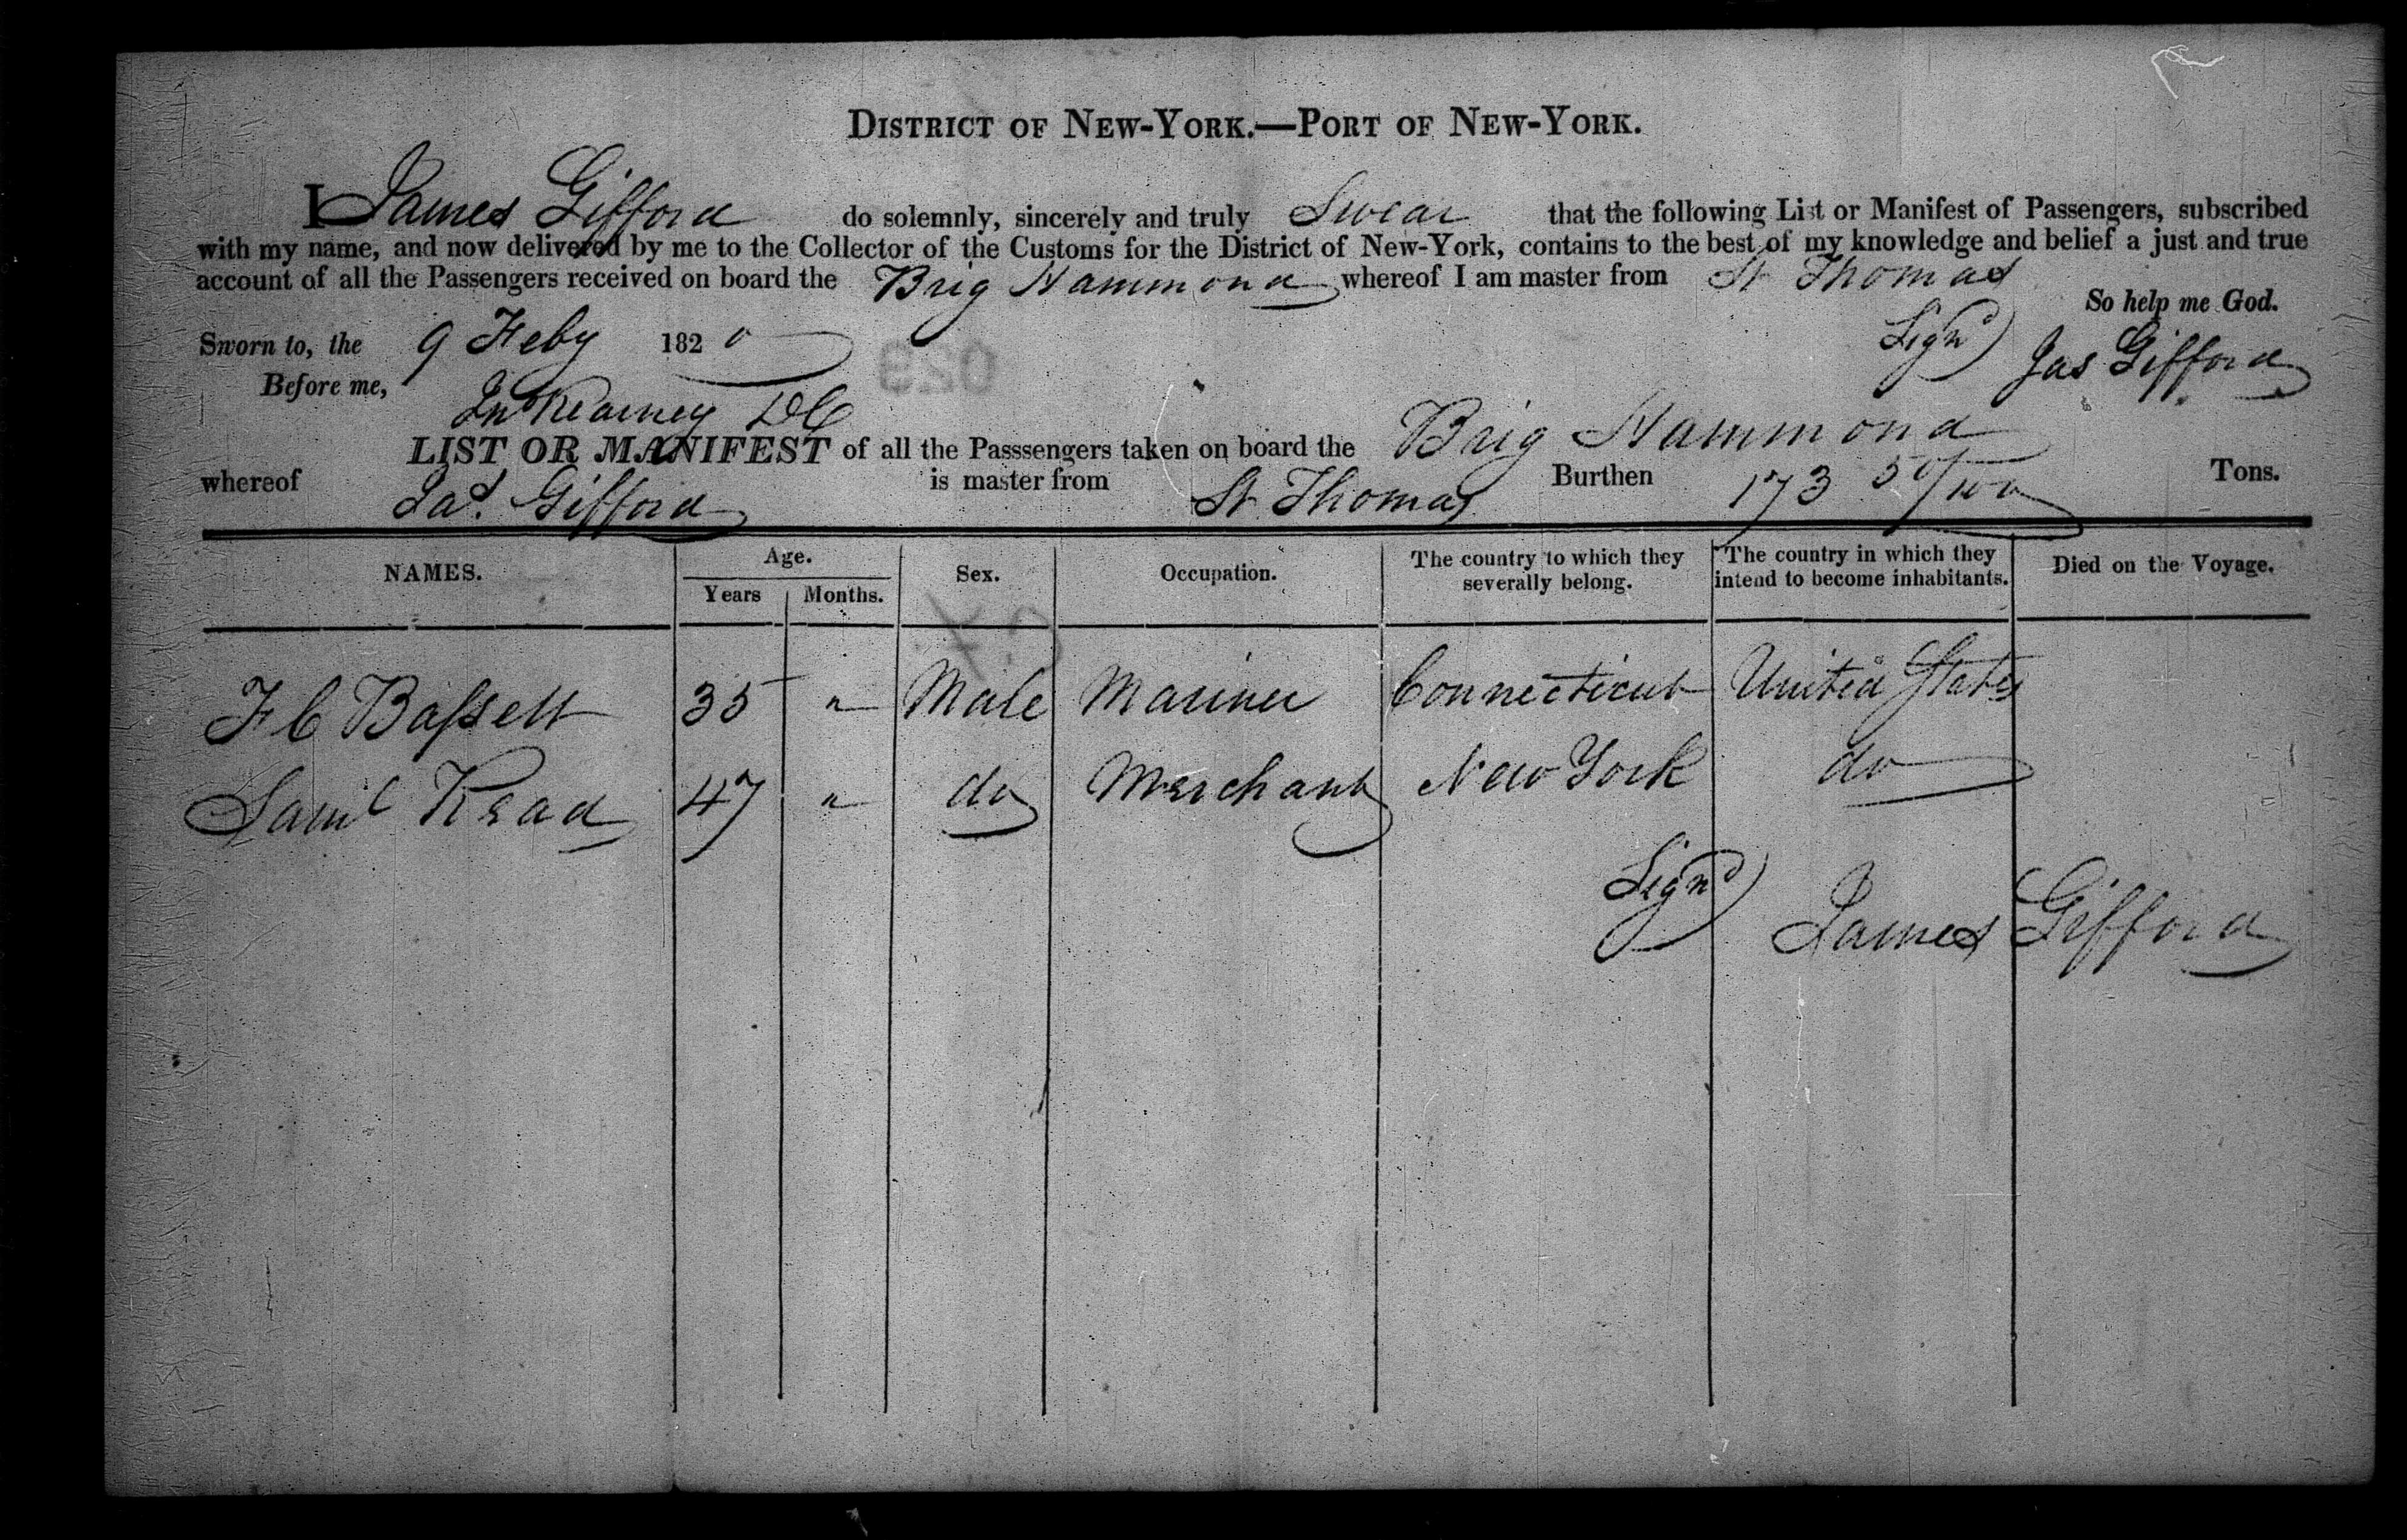 DISTRICT OF NEW-YORK.—PORT OF NEW-YORK.
I James Gifford do solemnly, sincerely and truly Swear that the following List or Manifest of Passengers, subscribed
with my name, and now delivered by me to the Collector of the Customs for the District of New-York, contains to the best of my knowledge and belief a just and true
account of all the Passengers received on board the Brig Hammond whereof I am master from St Thomas
So help me God.
Sworn to, the 9 Feby 1820 Signd Jas Gifford
Before me,
Jn Kearney DC
LIST OR MANIFEST of all the Passsengers taken on board the Brig Hammond
whereof Jas. Gifford is master from St Thomas Burthen 173 50/100 Tons.
NAMES. Age. Years Months. Sex. Occupation. The country to which they severally belong. The country in which they intend to become inhabitants. Died on the Voyage.
F C Bassett 35 " Male Mariner Connecticut United States
Saml Read 47 " do Merchant New York do
Signd James Gifford